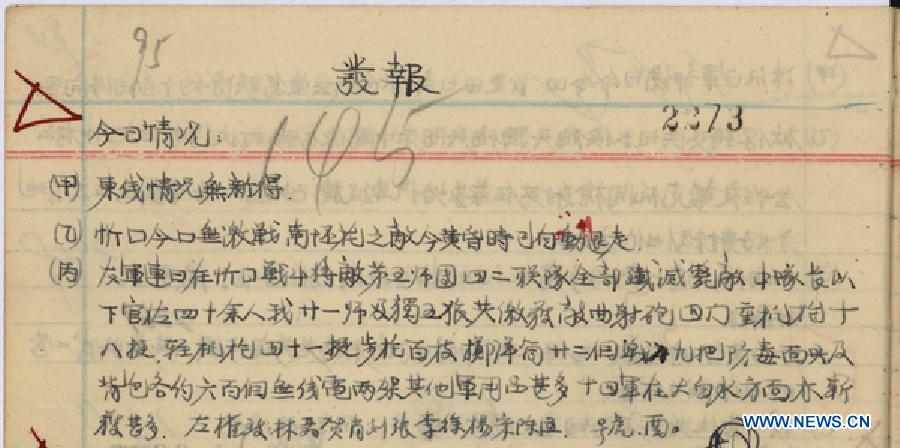 95
發報
2273
145
今日情况:
(甲) 東线情况無新得.
(乙) 忻口今日無激戰南怀化之敌今黄昏時已向 退走
(丙) 友軍連日在忻口戰斗将敵第五师团四二联隊全部殲滅斃敵中隊長以
下官佐四十余人我廿一师及獨五旅共缴获敵曲射砲四门重机枪十
八挺轻机枪四十一挺步枪百枝擲弹筒廿二個 刀九把防毒面具及
背包各约六百個無线電两架其他軍用品甚多十四軍在大白水方面亦斩
獲甚多. 左權 林聂贺肖刘张李徐楊宋陈
WWW.NEWS.CN